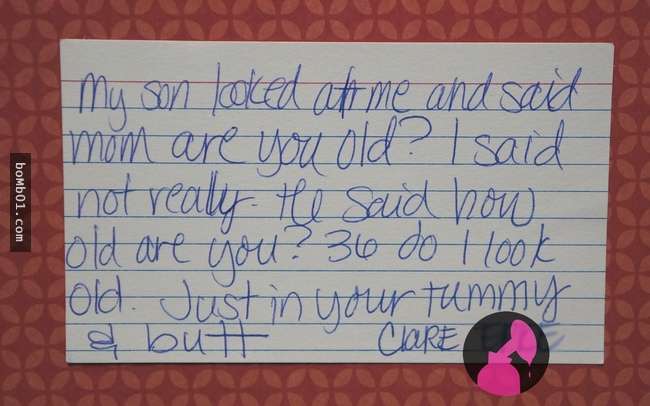 My son looked at me and said
mom are you old? I said
not really. He said how
old are you? 36 do I look
old. Just in your tummy
& butt CLARE
bomb01.com